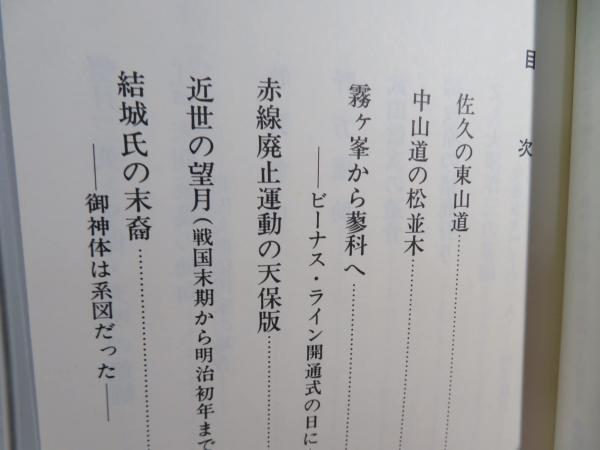 目次
佐久の東山道
中山道の松並木
霧ヶ峯から蓼科へ
――ビーナス・ライン開通式の日に
赤線廃止運動の天保版
近世の望月(戦国末期から明治初年まで
結城氏の末裔
――御神体は系図だった――